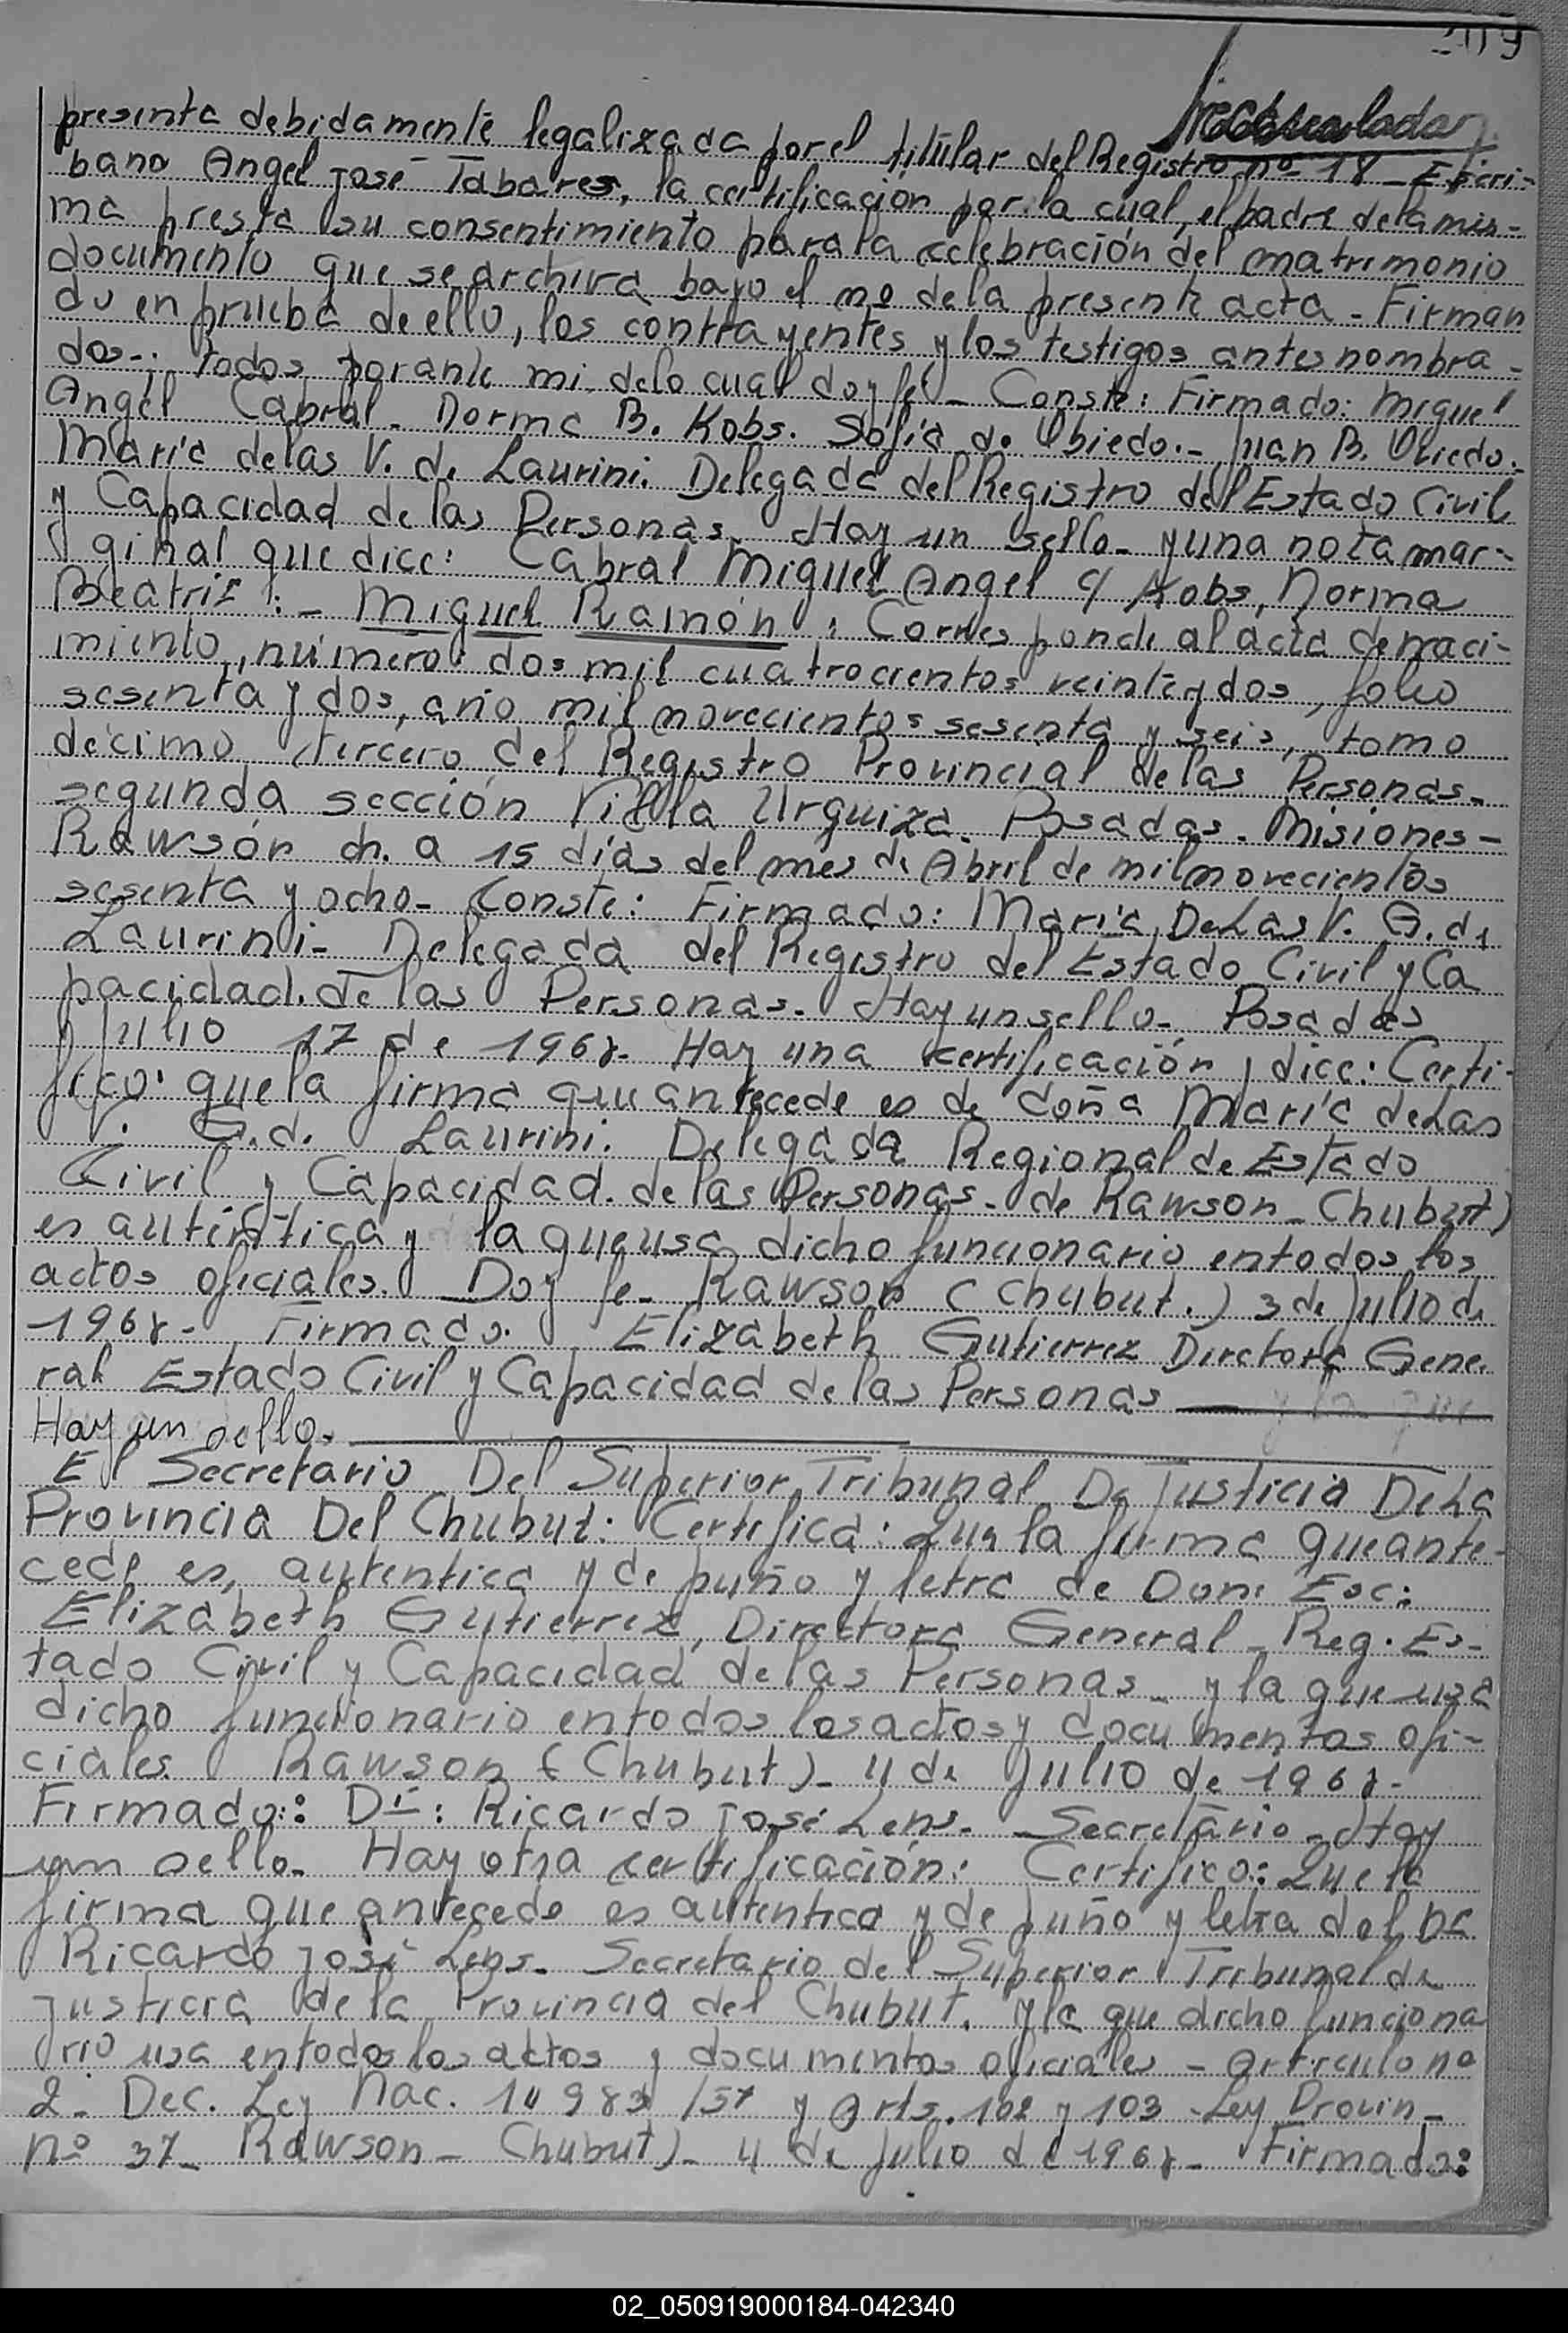 presenta debidamente legalizada por el titular del Registro nº 18 - Escri-
bano Angel José Tabares, la certificación por la cual, el padre de la mis-
ma presta su consentimiento para la celebración del matrimonio
documento que se archiva bajo el nº de la presente acta - Firman
do en prueba de ello, los contrayentes y los testigos antes nombra-
dos-: todos por ante mi de lo cual doy fé - Conste: Firmado: Miguel
Angel Cabral - Norma B. Kobs. Sofía de Obiedo.- Juan B. Obiedo.-
María de las V. de Laurini. Delegada del Registro del Estado Civil
y Capacidad de las Personas. Hay un sello - y una nota mar-
ginal que dice: Cabral Miguel Angel c/ Kobs, Norma
Beatriz: - Miguel Ramón: Corresponde al acta de naci-
miento, número dos mil cuatrocientos veintiydos, folio
sesenta y dos, año mil novecientos sesenta y seis, tomo
décimo tercero del Registro Provincial de las Personas-
segunda sección Villa Urquiza. Posadas. Misiones-
Rawsón ch. a 15 días del mes de Abril de mil novecientos
sesenta y ocho- Conste: Firmado: María De Las V. G. de
Laurini- Delegada del Registro del Estado Civil y Ca
pacidad. de las Personas. Hay un sello- Posadas
Julio 17 de 1968- Hay una certificación y dice: Certi-
fico: que la firma que antecede es de doña María de Las
V. G. de Laurini. Delegada Regional de Estado
Civil y Capacidad. de las Personas. de Rawson - Chubut)
es auténtica y la que usa dicho funcionario en todos los
actos oficiales. Doy fe- Rawson (Chubut.) 3 de Julio de
1968- Firmado. Elizabeth Gutierrez Directora Gene.
ral Estado Civil y Capacidad de las Personas
Hay un sello.
El Secretario Del Superior Tribunal De Justicia De La
Provincia Del Chubut: Certifica: Que la firma que ante-
cede es, autentica y de puño y letra de Don: Esc:
Elizabeth Gutierrez, Directora General - Reg. Es-
tado Civil y Capacidad de las Personas - y la que usa
dicho funcionario en todos los actos y documentos ofi-
ciales Rawson (Chubut)- 4 de Julio de 1968-
Firmado: Dr: Ricardo José Lens- Secretario - Hay
un sello- Hay otra certificación: Certifico: Que la
firma que antecede es autentica y de puño y letra del Dr
Ricardo José Lens- Secretario del Superior Tribunal de
Justicia de la Provincia del Chubut. y la que dicho funciona
rio usa en todos los actos y documentos oficiales - Articulo nº
2- Dec. Ley Nac. 14983/57 y Arts. 102 y 103 - Ley Provin-
nº 37- Rawson - Chubut)- 4 de Julio de 1968- Firmado:
02_050919000184-042340